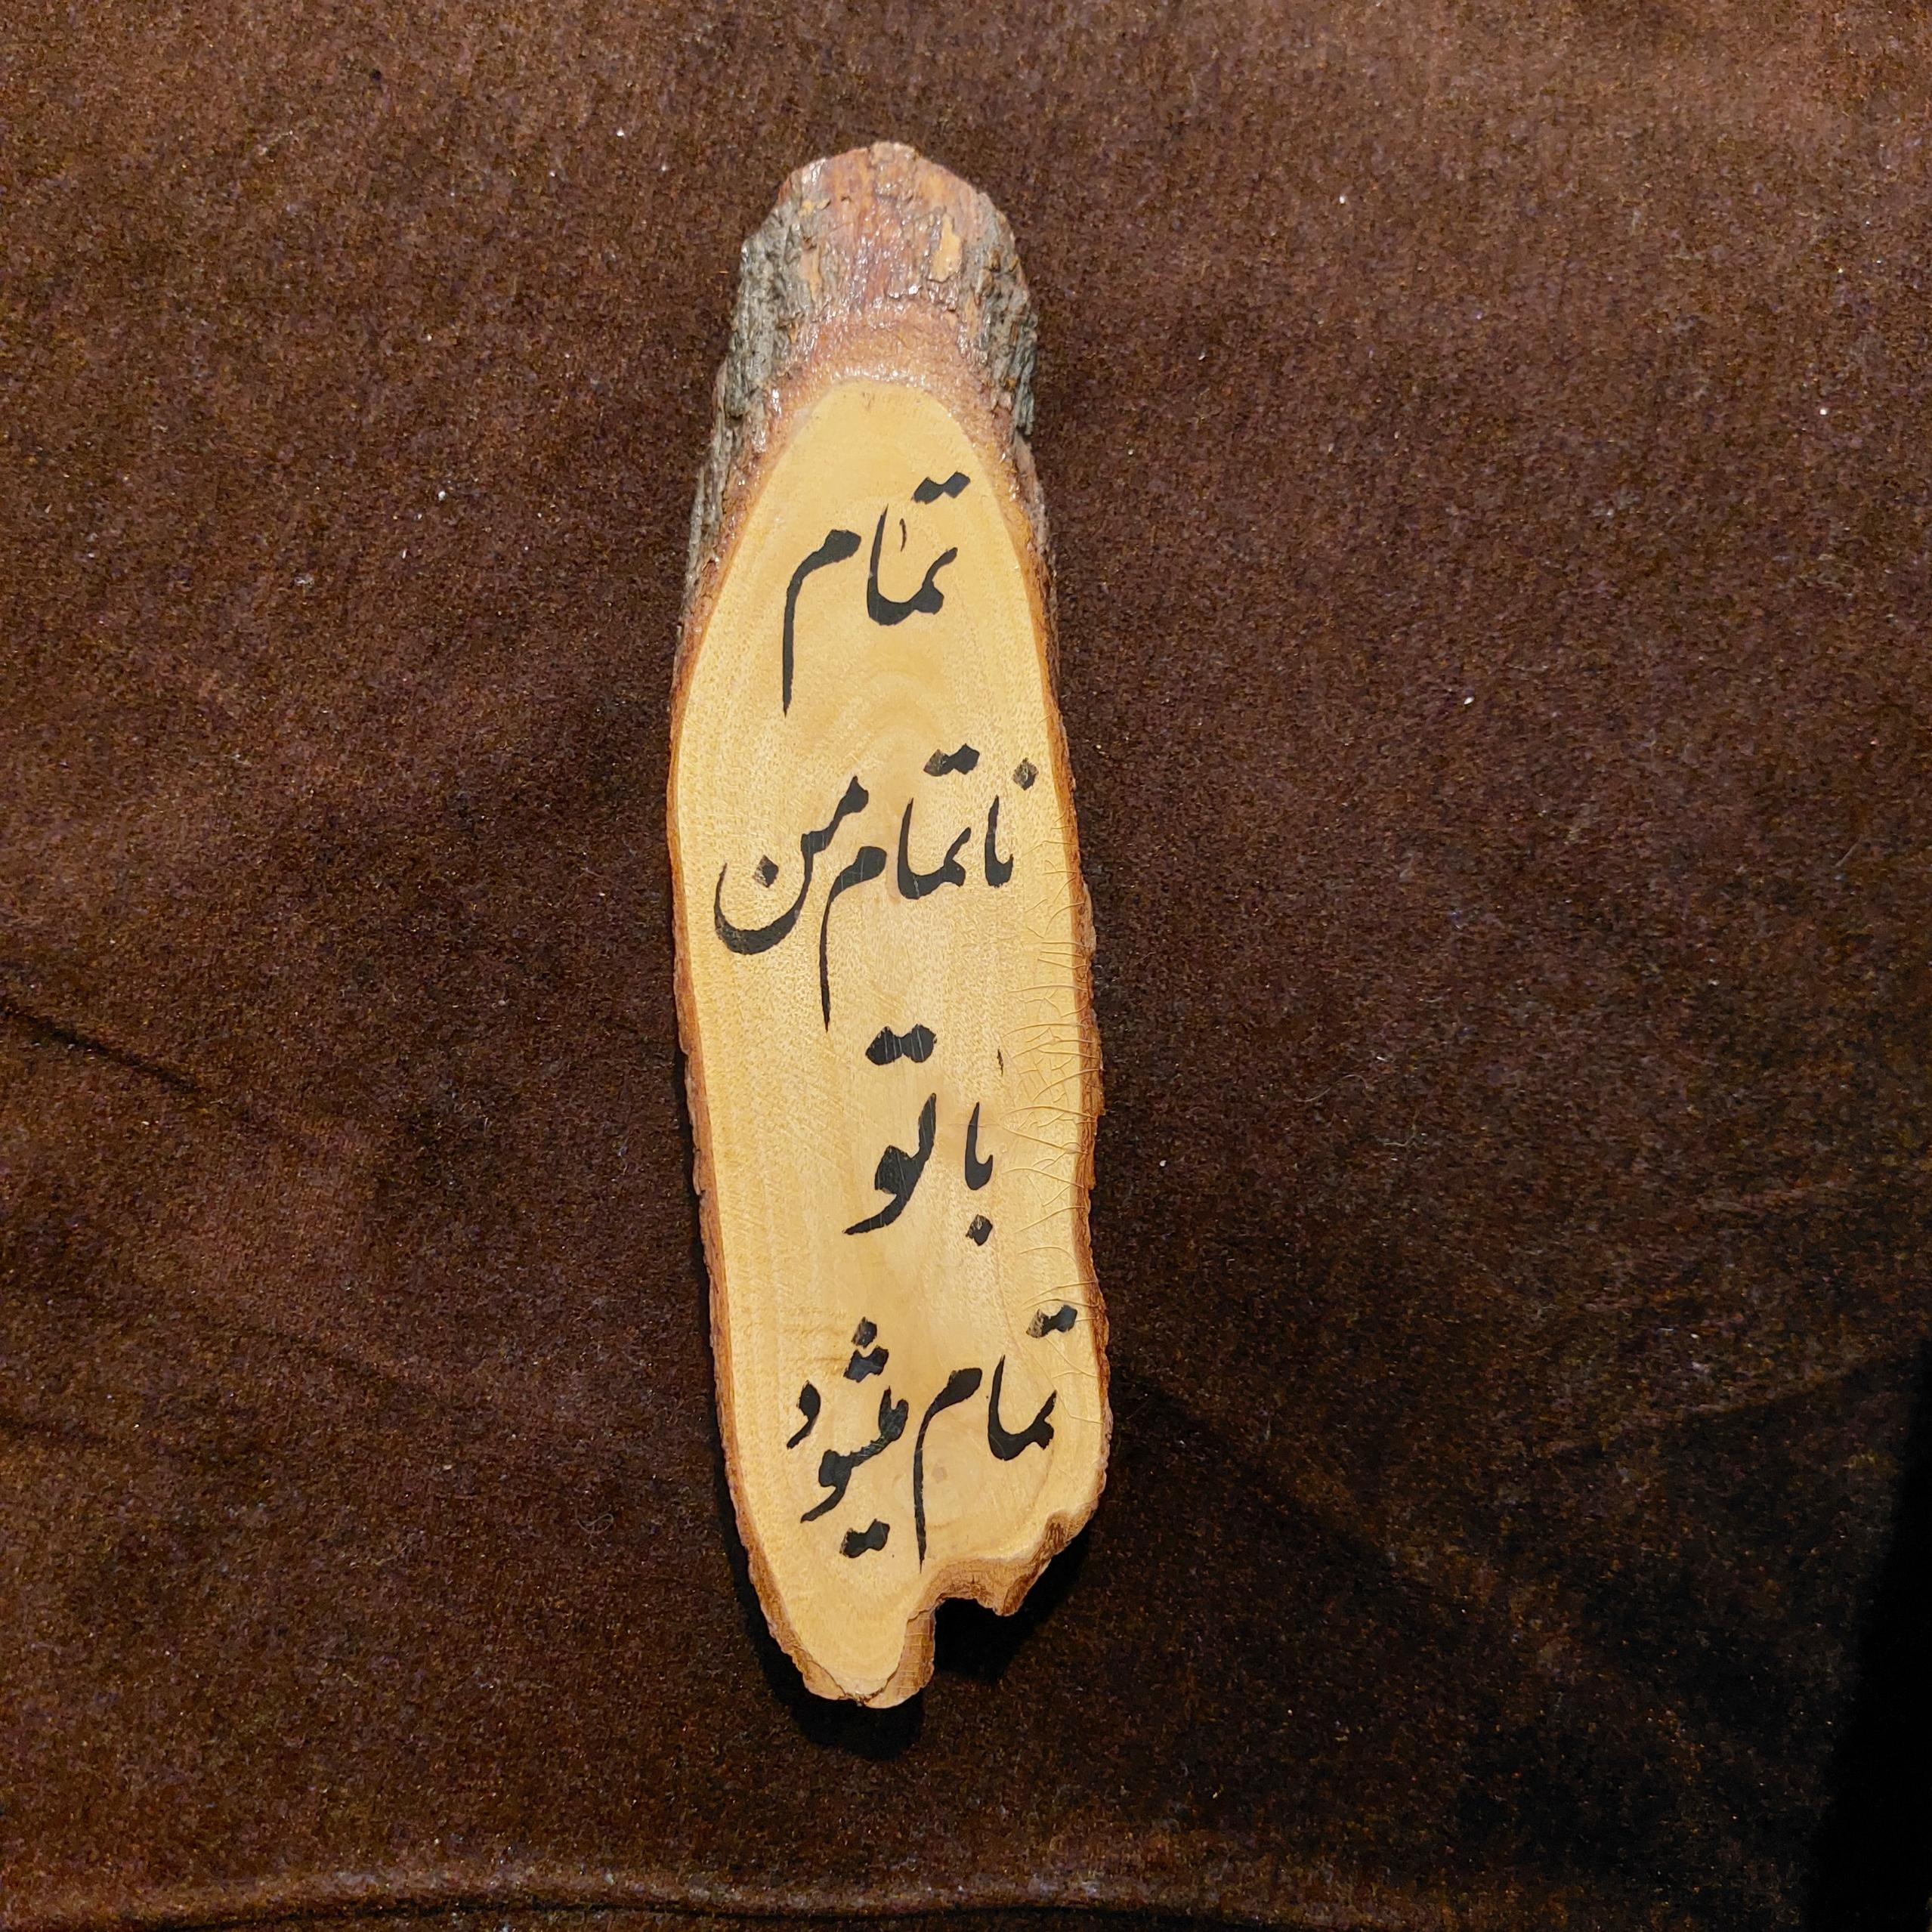 تمام
ناتمام من
با تو
تمام میشود